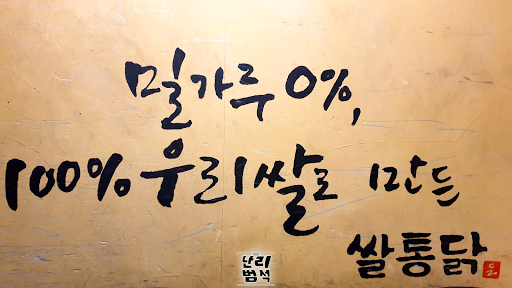 밀가루 0%,
100% 우리쌀로 만든
쌀통닭
난리
범석